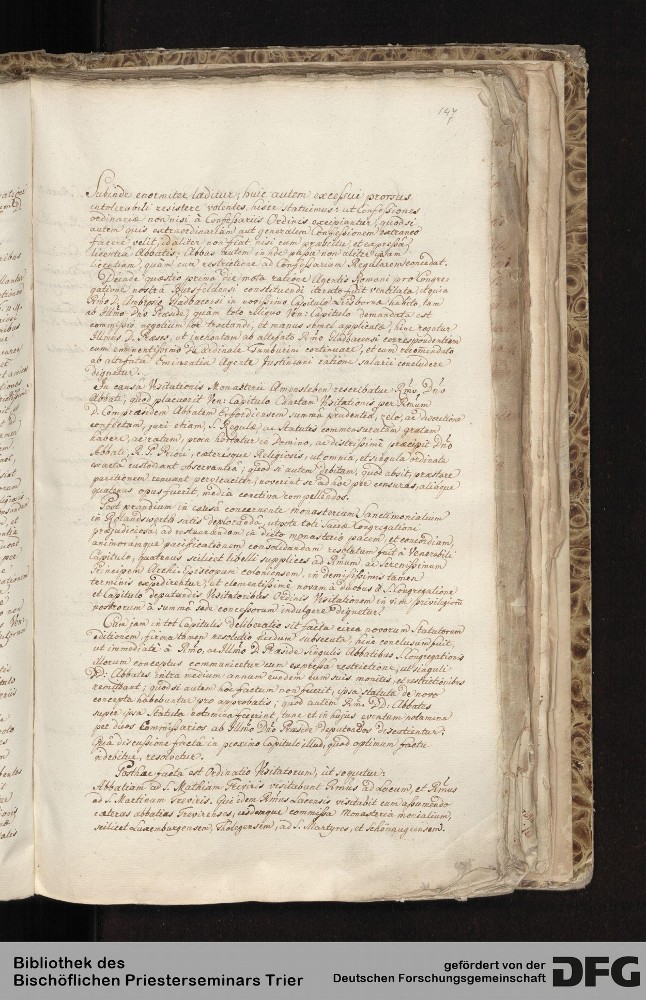 147
Subinde enormiter læditur; huic autem excessui prorsus
intolerabili resistere volentes, hisce statuimus: ut Confessiones
ordinariæ non nisi à Confessariis Ordinis excipiantur, quodsi
autem quis extraordinariam aut generalem Confessionem extraneo
facere velit, id aliter non fiat nisi cum prævia, et expressa
licentia Abbatis; Abbas autem in hoc passu non aliter ipsam
licentiam, quam cum restrictione ad Confessarium Regularem concedat.
Deinde quæstio primo die mota ratione Agentis Romani pro Congre-
gatione nostra Bursfeldensi constituendi iterato fuit ventilata, et quia
Rmo D. Gladbacensi in novissimo Capitulo Liesbornæ habito, tam
ab Illmo Dno Præside, quam toto reliquo Ven: Capitulo demandata est
commissio negotium hoc tractandi, et manus semel applicatæ, hinc rogatur
Illmus D. Præses, ut inchoatam ab altefato Rmo Gladbacensi correspondentiam
cum eminentissimo D. Cardinale Tamburini continuare, et cum recomendato
ab altefata Eminentia Agente Justiniani ratione salarii concludere
dignetur.
In causa Visitationis Monasterii Amensleben rescribatur Rmo Dno
Abbati, quod placuerit Ven: Capitulo Chartam Visitationis per Rmum
D. Compræsidem Abbatem Erffordiensem summa prudentia, zelo, ac discretione
confectam, juri etiam, S. Regulæ ac Statutis commensuratam gratam
habere, ac ratam, prout hortatur in Domino, ac districtissime præcipit Dno
Abbati, R. P. Priori, cæterisque Religiosis, ut omnia, et singula ordinata
exacta custodiant observantia; quod si autem debitam, quod absit, præstare
paritionem renuant perviecaciter, noverint se ad hoc per censuras, aliaque
quatenus opus fuerit, media coactiva compellendos.
Post prandium in causa concernente monasterium Sanctimonialium
in Rolandswerth satis deploranda, utpote toti Sacræ Congregationi
præjudiciosa, ad restaurandam in dicto monasterio pacem, et concordiam,
animorumque pacificationem consolidandam resolutum fuit à Venerabili
Capitulo, quatenus scilicet libelli supplices ad Rmum ac Serenissimum
Principem Archi-Episcopum coloniensem, in demississimis tamen
terminis expedirentur, ut clementissimè novam à duobus S. Congregatione
et Capitulo deputandis Visitatoribus Ordinis Visitationem in vim privilegiorum
nostrorum à summa sede concessorum indulgere dignetur.
Cum jam in tot Capitulis deliberatio sit facta circa novorum Statutorum
editionem, firma tamen resolutio necdum subsecuta, hinc conclusum fuit,
ut immediatè à Rmo, ac Illmo D. Præside singulis Abbatibus S. Congregationis
illorum conceptus communicetur cum expressa restrictione, ut singuli
DD: Abbates intra medium annum eundem cum suis monitis, et restrictionibus
remittant; quod si autem hoc factum non fuerit, ipsa statuta de novo
concepta habebuntur pro approbatis; quod autem Rmi DD: Abbates
super ipsa Statuta notamina fecerint, tunc et in hujus eventum notamina
per duos Commissarios ab Illmo Dno Præside deputandos discutientur:
Qua discussione facta in proximo Capitulo illud, quod optimum factu
videbitur, resolvetur.
Posthac facta est Ordinatio Visitatorum, ut sequitur:
Abbatiam ad S. Mathiam Treviris visitabunt Rmus ad Lacum, et Rmus
ad S. Martinum Treviris. Qui idem Rmus Lacensis visitabit cum assumendo
cæteras abbatias Trevirenses, iisdemque commissa Monasteria monialium,
scilicet Luxemburgensem, Tholegiensem, ad S. Martyres, et Schönaugiensem.
Bibliothek des
Bischöflichen Priesterseminars Trier
gefördert von der
Deutschen Forschungsgemeinschaft
DFG